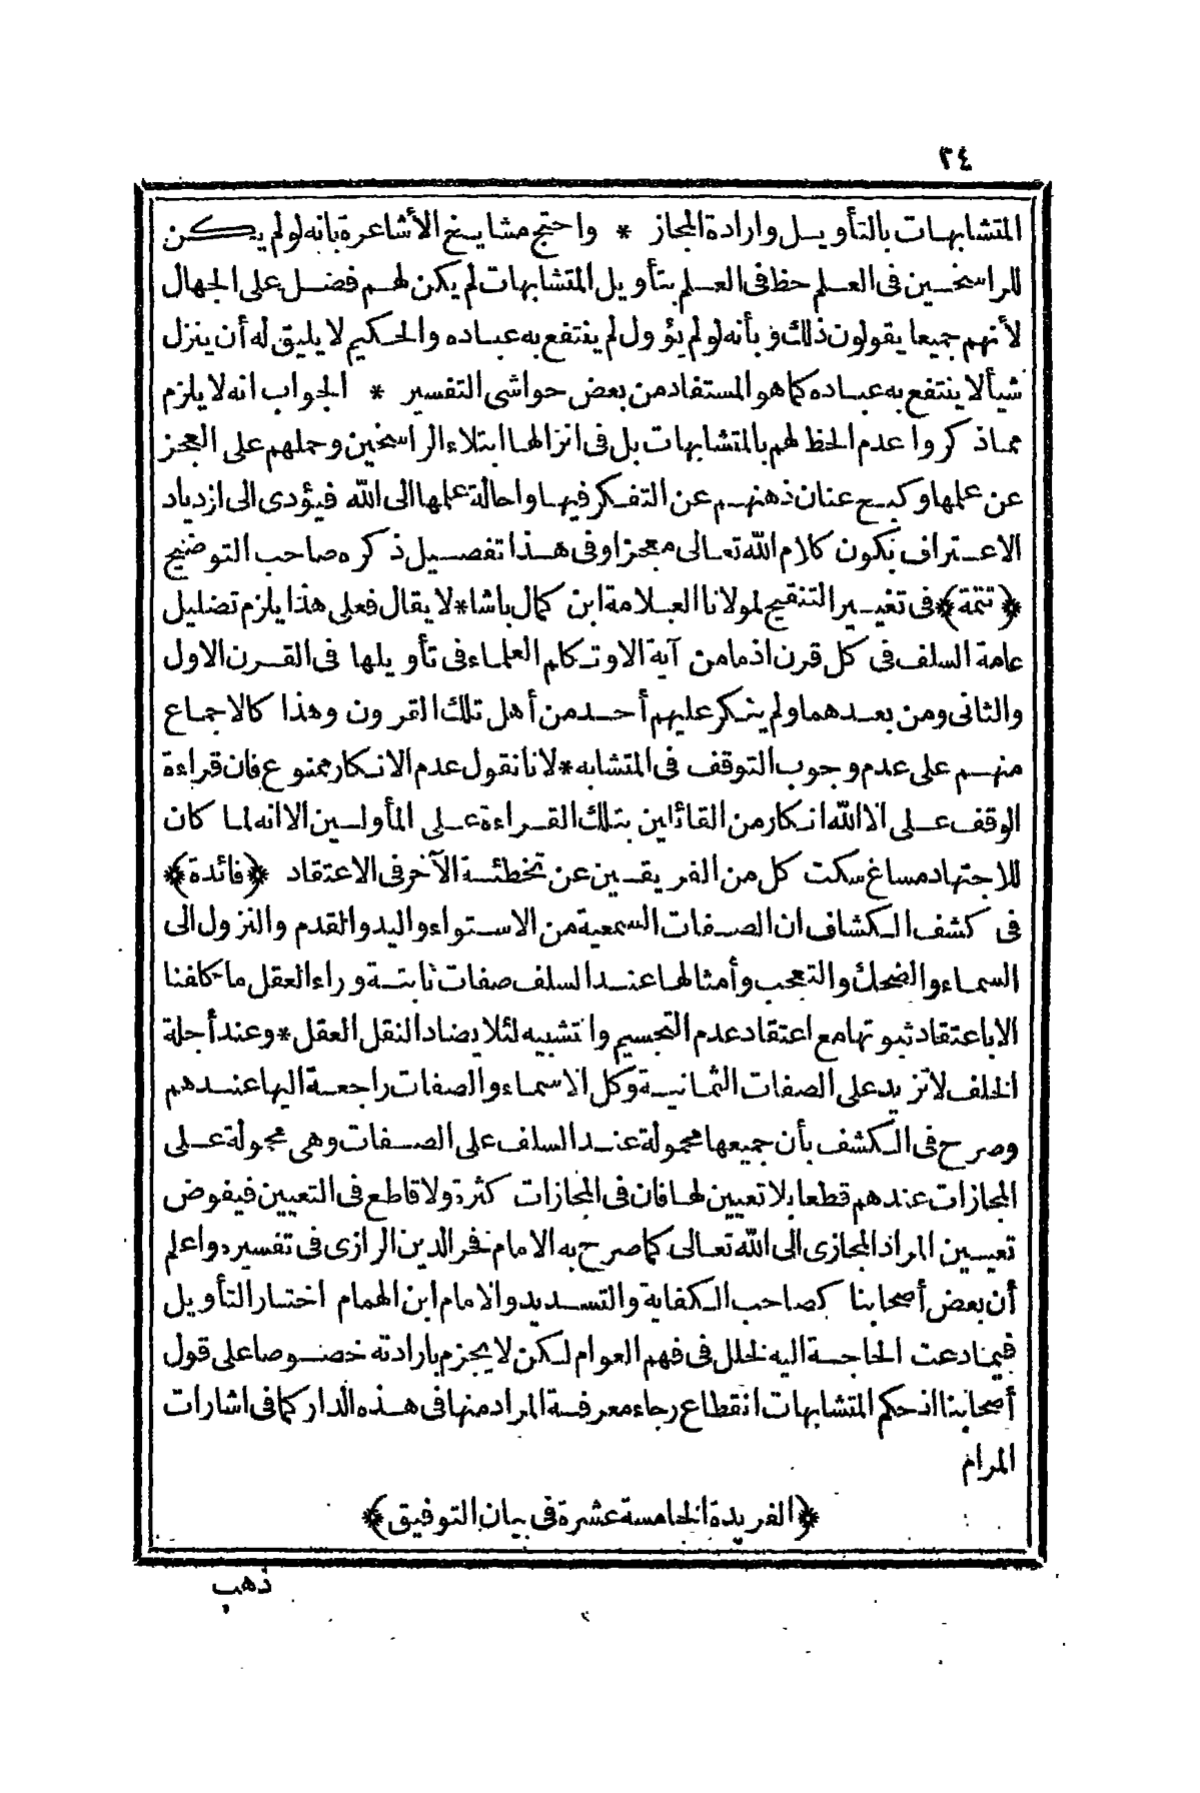 ٢٤
المتشابهات بالتأويل وارادة المجاز * واحتج مشايخ الأشاعرة بانه لو لم يكن
للراسخين فى العلم حظ فى العلم بتأويل المتشابهات لم يكن لهم فضل على الجهال
لأنهم جميعا يقولون ذلك وبأنه لو لم يؤول لم ينتفع به عباده والحكيم لا يليق له أن ينزل
شيأ لا ينتفع به عباده كما هو المستفاد من بعض حواشى التفسير * الجواب انه لا يلزم
مما ذكروا عدم الحظ لهم بالمتشابهات بل فى انزالها ابتلاء الراسخين وحملهم على العجز
عن علمها وكبح عنان ذهنهم عن التفكر فيها واحالة علمها الى الله فيؤدى الى ازدياد
الاعتراف بكون كلام الله تعالى معجزا وفى هذا تفصيل ذكره صاحب التوضيح
﴿تتمة﴾ فى تغيير التنقيح لمولانا العلامة ابن كمال باشا * لا يقال فعلى هذا يلزم تضليل
عامة السلف فى كل قرن اذ ما من آية الا وتكلم العلماء فى تأويلها فى القرن الاول
والثانى ومن بعدهما ولم ينكر عليهم أحد من أهل تلك القرون وهذا كالاجماع
منهم على عدم وجوب التوقف فى المتشابه * لانا نقول عدم الانكار ممنوع فان قراءة
الوقف على الا الله انكار من القائلين بتلك القراءة على المأولين الا انه لما كان
للاجتهاد مساغ سكت كل من الفريقين عن تخطئة الآخر فى الاعتقاد ﴿فائدة﴾
فى كشف الكشاف ان الصفات السمعية من الاستواء واليد والقدم والنزول الى
السماء والضحك والتعجب وأمثالها عند السلف صفات ثابتة وراء العقل ما كلفنا
الا باعتقاد ثبوتها مع اعتقاد عدم التجسيم والتشبيه لئلا يضاد النقل العقل * وعند أجلة
الخلف لا تزيد على الصفات الثمانية وكل الاسماء والصفات راجعة اليها عندهم
وصرح فى الكشف بأن جميعها محمولة عند السلف على الصفات وهى محمولة على
المجازات عندهم قطعا بلا تعيين لها فان فى المجازات كثرة ولا قاطع فى التعيين فيفوض
تعيين المراد المجازى الى الله تعالى كما صرح به الامام فخر الدين الرازى فى تفسيره واعلم
أن بعض أصحابنا كصاحب الكفاية والتسديد والامام ابن الهمام اختار التأويل
فيما دعت الحاجة اليه لخلل فى فهم العوام لكن لا يجزم بارادته خصوصا على قول
أصحابنا اذ حكم المتشابهات انقطاع رجاء معرفة المراد منها فى هذه الدار كما فى اشارات
المرام
﴿الفريدة الخامسة عشرة فى بيان التوفيق﴾
ذهب